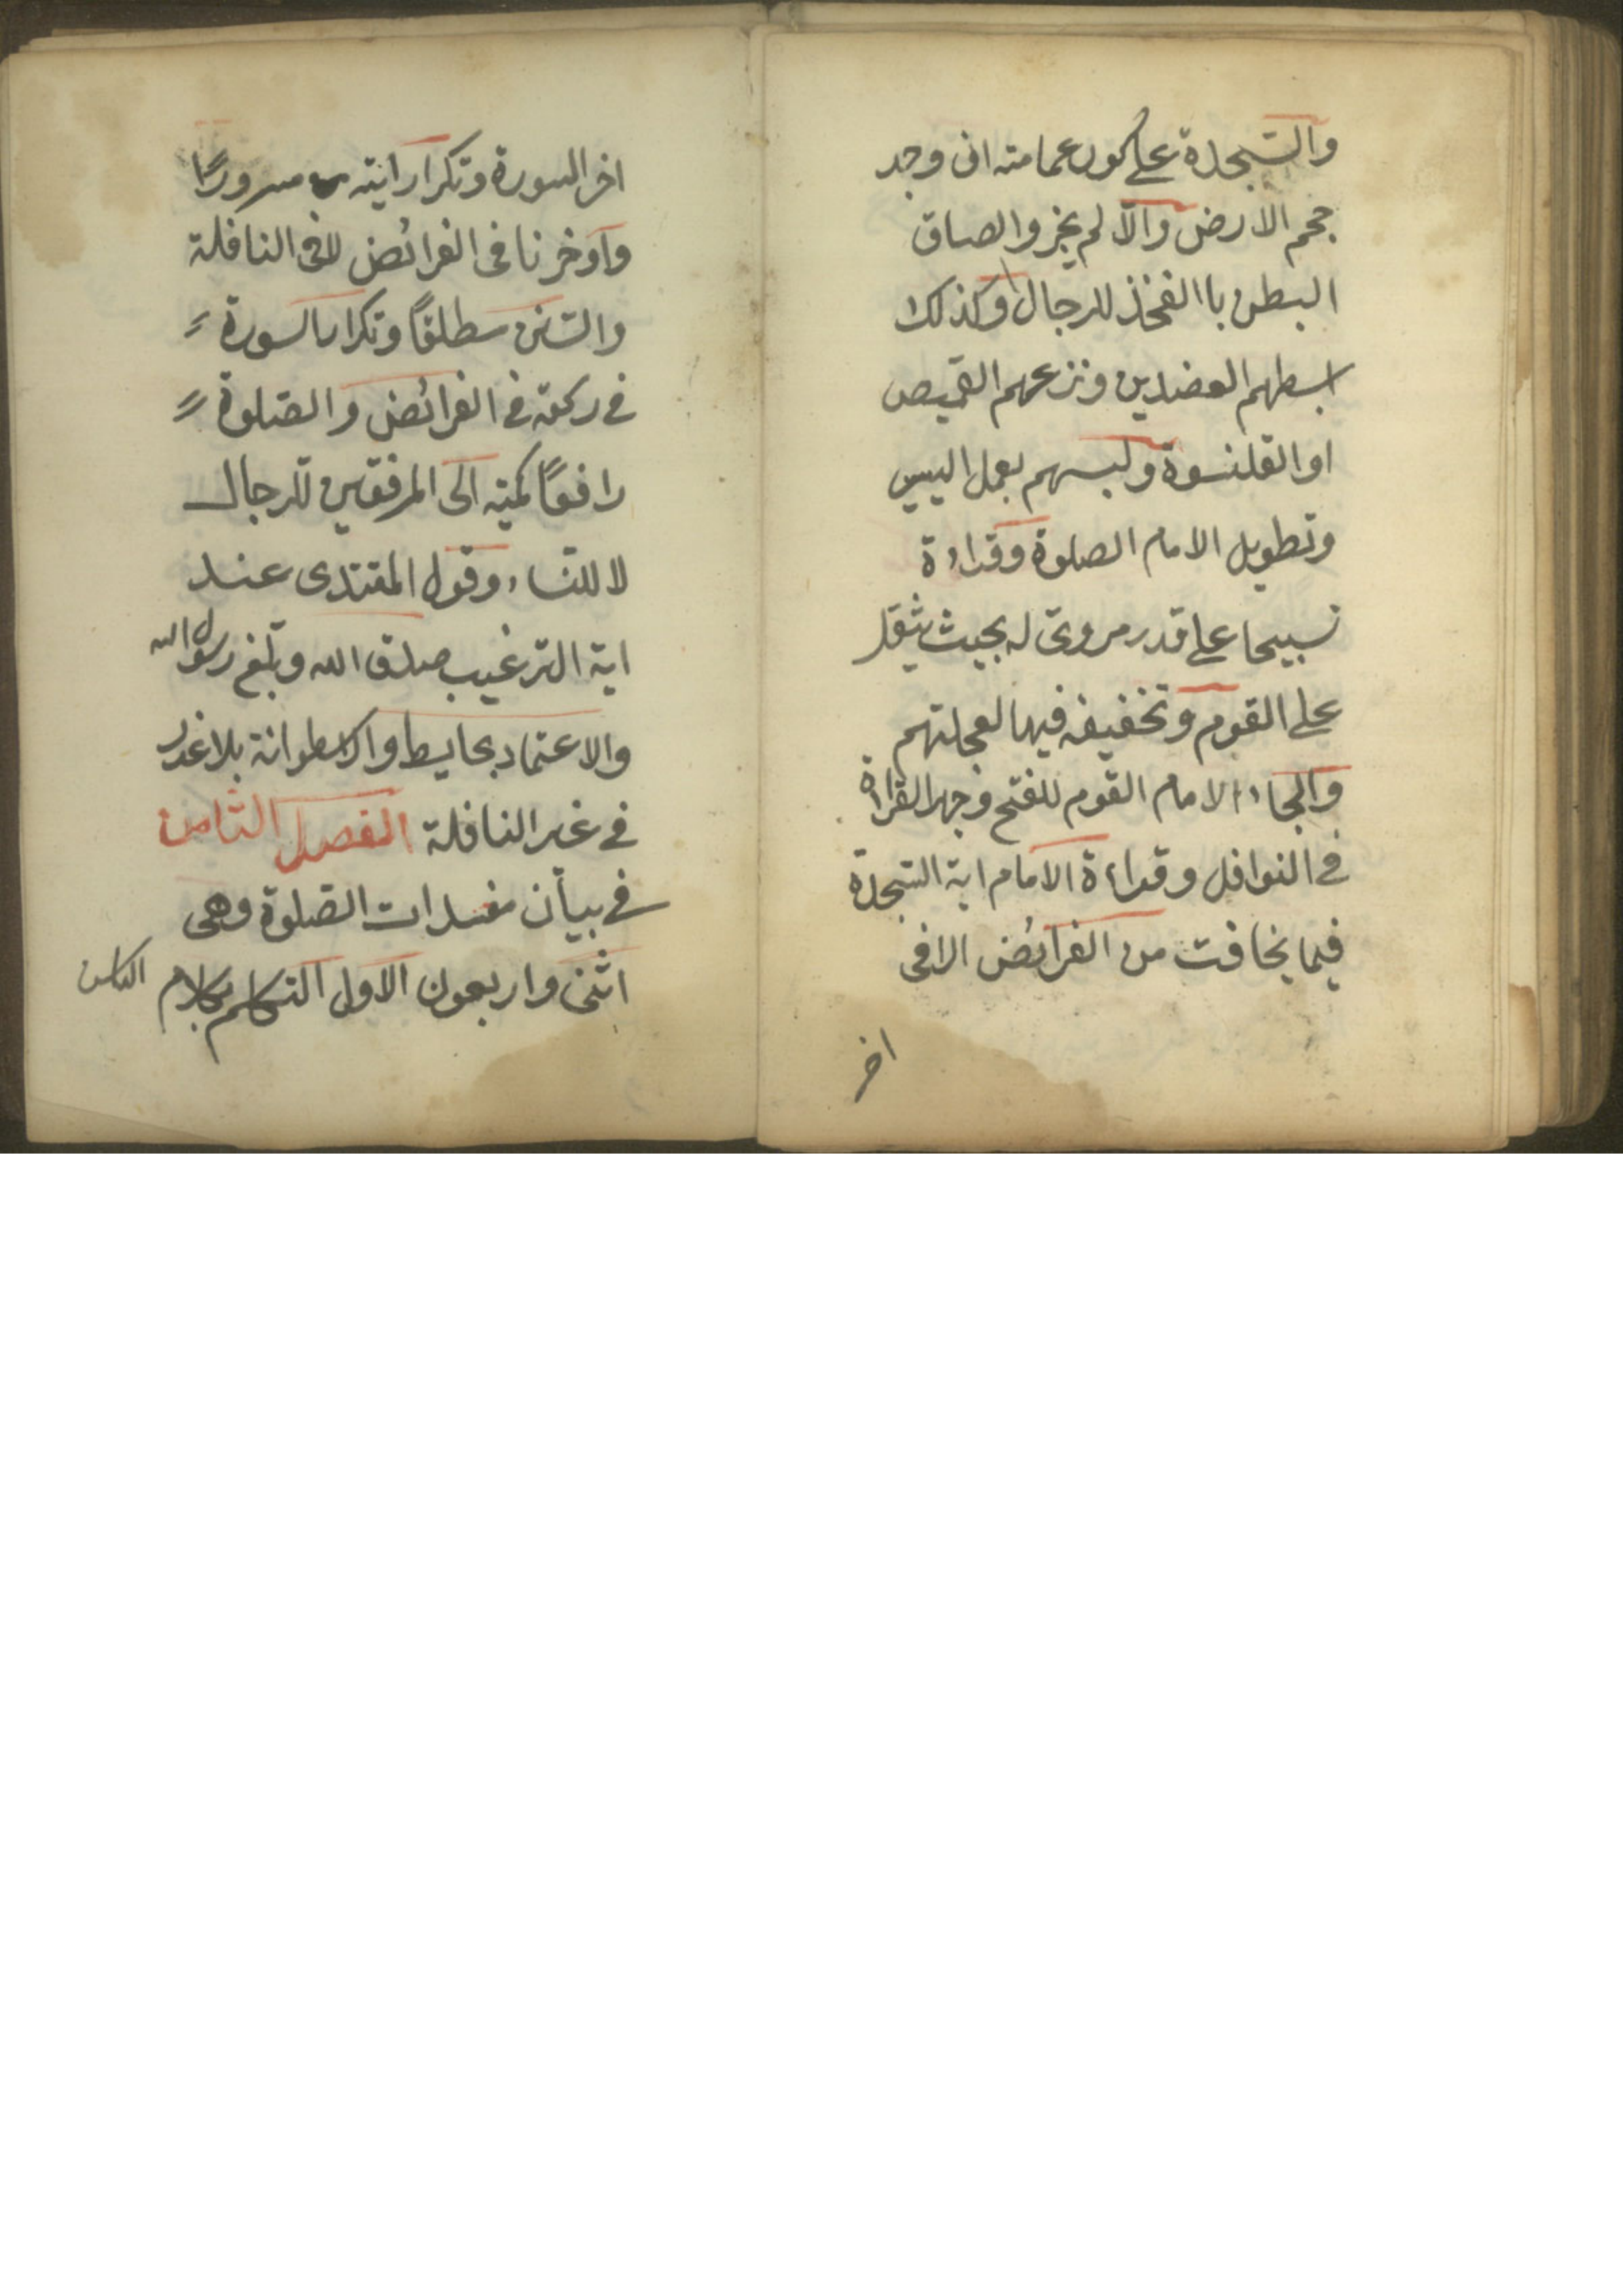 والسجدة على كور عمامته ان وجد
حجم الارض والا لم يجز والصاق
البطن باالفخذ للرجال وكذلك
بسطهم العضدين ونزعهم القميص
او القلنسوة ولبسهم بعمل اليسير
وتطويل الامام الصلوة وقراءة
تسبيحا على قدر مروى له بحيث يثقل
على القوم وتخفيفه فيها لعجلتهم
والجاء الامام القوم للفتح وجهر القراءة
فى النوافل وقراءة الامام اية السجدة
فيما يخافت من الفرائض الا فى
اخر
اخر السورة وتكرار اية سرورًا
او خرنا فى الفرائض لا فى النافلة
والسنن مطلقًا وتكرار السورة
فى ركعة فى الفرائض والصلوة
رافعًا كميه الى المرفقين للرجال
لا للنساء وقول المقتدى عند
اية الترغيب صدق الله وبلغ رسول الله
والاعتماد بحايط واسطوانة بلا عذر
فى غير النافلة الفصل الثامن
فى بيان مفسدات الصلوة وهى
اثنى واربعون الاول التكلم بكلام الناس